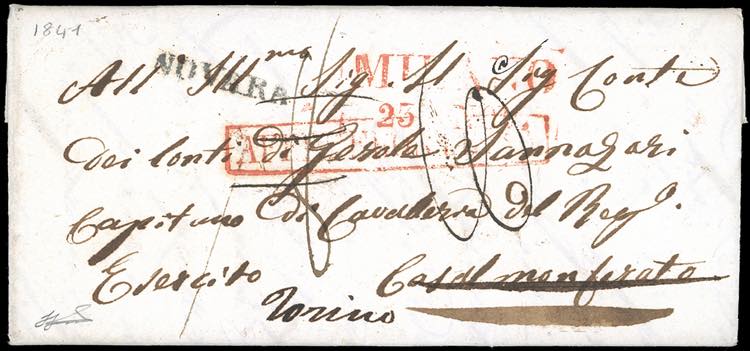 1841
NOVARA
MILANO
25
All Ill.mo Sig. Il Sig Conte
dei Conti di Gerola Sannazari
Capitano di Cavaleria del Reg.
Esercito Casal monferato
Torino